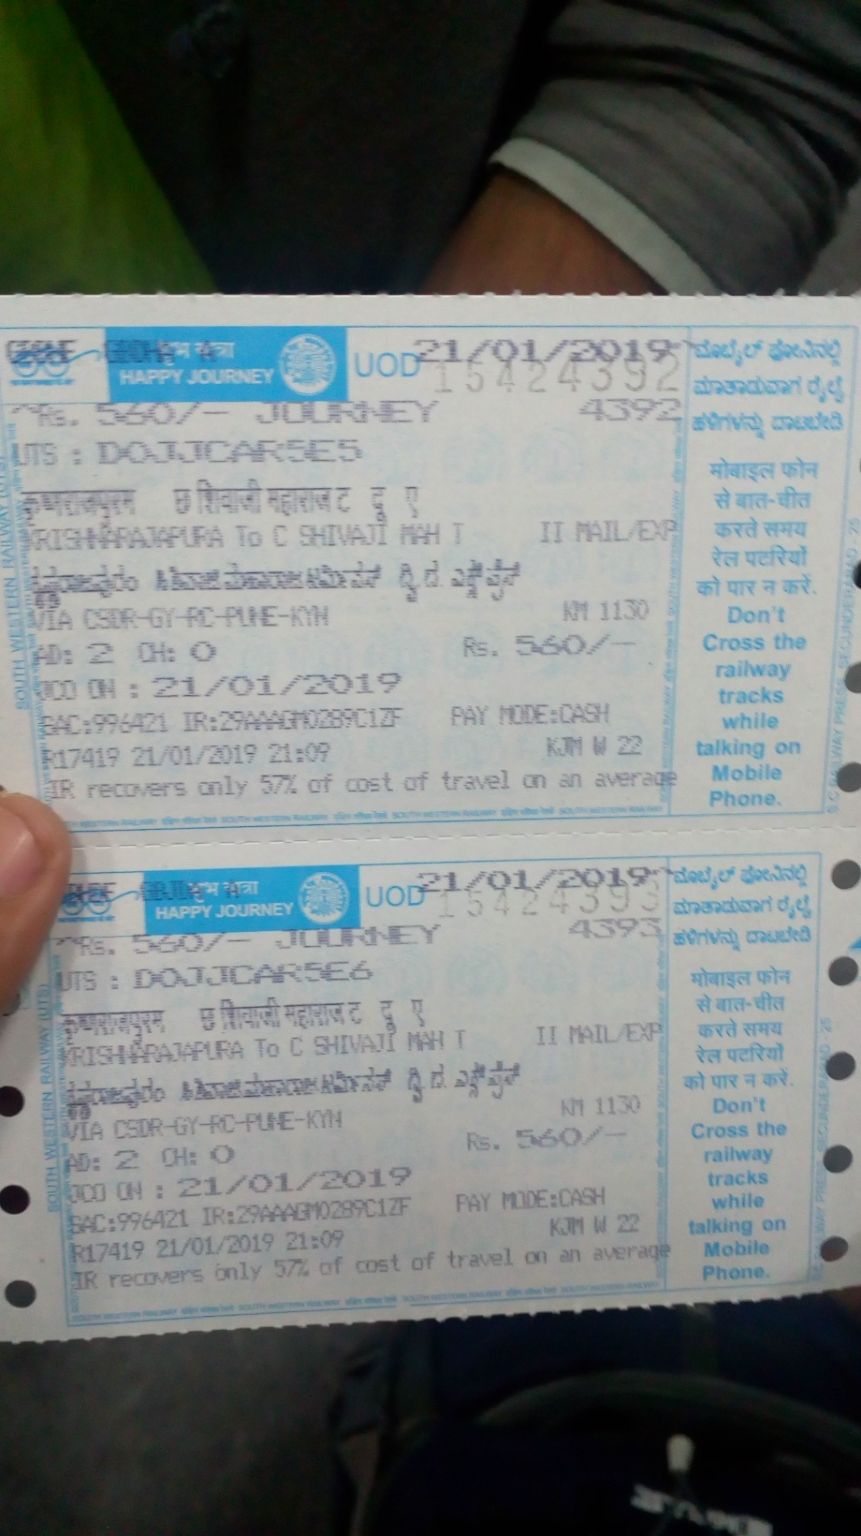 शुभ यात्रा
HAPPY JOURNEY
UOD 21/01/2019
15424392
Rs. 560/- JOURNEY 4392
UTS : DOJJCAR5E5
कृष्णराजपुरम छ शिवाजी महाराज ट दू ए
KRISHNARAJAPURA To C SHIVAJI MAH T II MAIL/EXP
VIA CSDR-GY-RC-PUNE-KYN KM 1130
AD: 2 CH: 0 Rs. 560/-
JCO ON : 21/01/2019
SAC:996421 IR:29AAAGM0289C1ZF PAY MODE:CASH
R17419 21/01/2019 21:09 KJM W 22
IR recovers only 57% of cost of travel on an average
SOUTH WESTERN RAILWAY (UTS)
ಮೊಬೈಲ್ ಫೋನಿನಲ್ಲಿ
ಮಾತಾಡುವಾಗ ರೈಲ್ವೆ
ಹಳಿಗಳನ್ನು ದಾಟಬೇಡಿ
मोबाइल फोन
से बात-चीत
करते समय
रेल पटरियों
को पार न करें.
Don't
Cross the
railway
tracks
while
talking on
Mobile
Phone.
शुभ यात्रा
HAPPY JOURNEY
UOD 21/01/2019
15424393
Rs. 560/- JOURNEY 4393
UTS : DOJJCAR5E6
कृष्णराजपुरम छ शिवाजी महाराज ट दू ए
KRISHNARAJAPURA To C SHIVAJI MAH T II MAIL/EXP
VIA CSDR-GY-RC-PUNE-KYN KM 1130
AD: 2 CH: 0 Rs. 560/-
JCO ON : 21/01/2019
SAC:996421 IR:29AAAGM0289C1ZF PAY MODE:CASH
R17419 21/01/2019 21:09 KJM W 22
IR recovers only 57% of cost of travel on an average
SOUTH WESTERN RAILWAY (UTS)
ಮೊಬೈಲ್ ಫೋನಿನಲ್ಲಿ
ಮಾತಾಡುವಾಗ ರೈಲ್ವೆ
ಹಳಿಗಳನ್ನು ದಾಟಬೇಡಿ
मोबाइल फोन
से बात-चीत
करते समय
रेल पटरियों
को पार न करें.
Don't
Cross the
railway
tracks
while
talking on
Mobile
Phone.